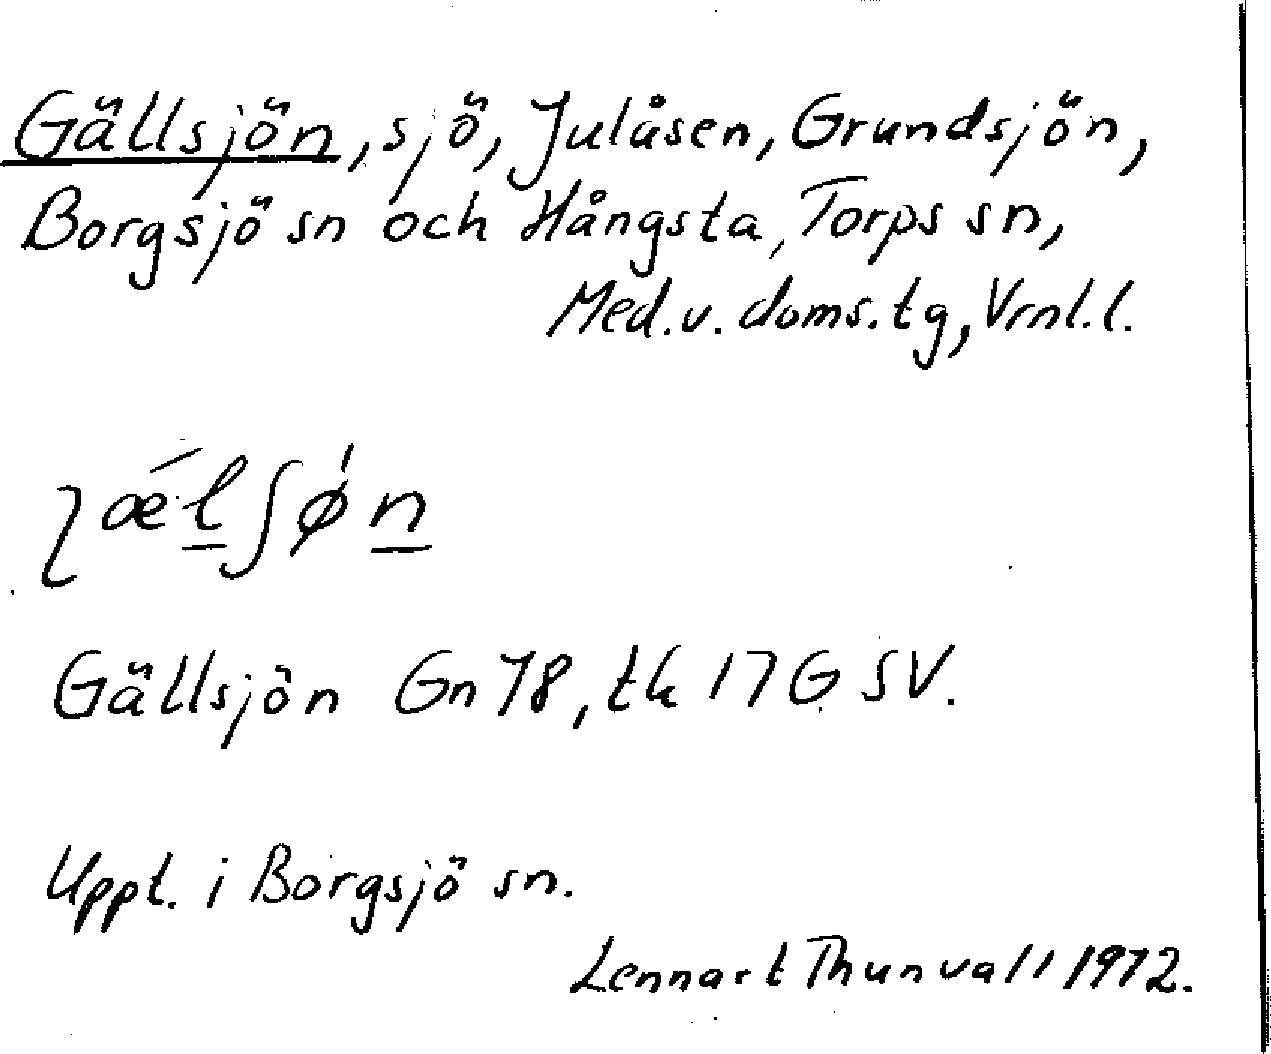 Gällsjön, sjö, Julåsen, Grundsjön,
Borgsjö sn och Hångsta, Torps sn,
Med. v. doms. tg, Vrnl. l.
ʅǽl̲ʃǿn̲
Gällsjön Gn 78, tk 17 G SV.
Uppt. i Borgsjö sn.
Lennart Thunvall 1972.